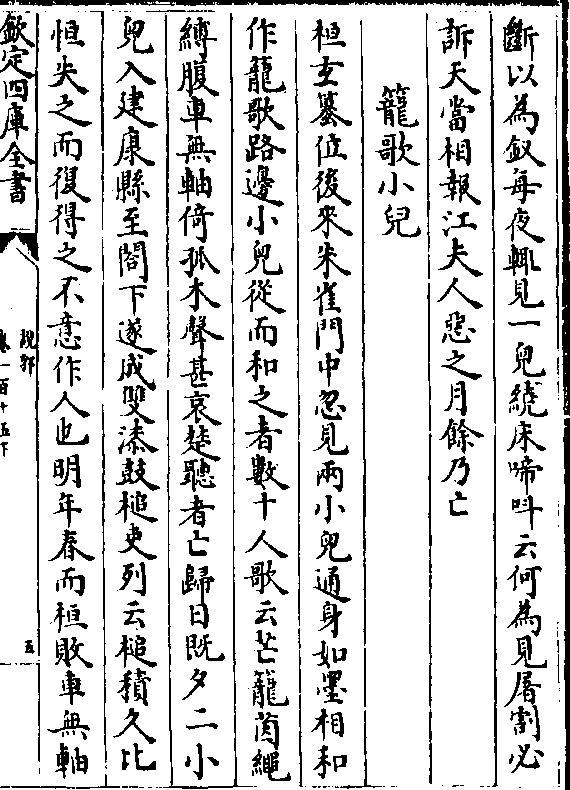 斷以為釵每夜輒見一兒繞床啼呌云何為見屠割必
訴天當相報江夫人惡之月餘乃亡
籠歌小兒
桓玄簒位後來朱雀門中忽見兩小兒通身如墨相和
作籠歌路邊小兒從而和之者數十人歌云芒籠茵繩
縛腹車無軸倚孤木聲甚哀楚聽者亡歸日既夕二小
兒入建康縣至閤下遂成雙漆鼓槌吏列云槌積久比
恒失之而復得之不意作人也明年春而桓敗車無軸
欽定四庫全書
說郛
卷一百十五下
五